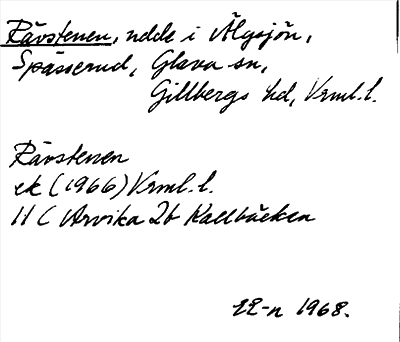 Rävstenen, udde i Älgsjön,
Spässerud, Glava sn,
Gillbergs hd, Vrml.l.
Rävstenen
ek (1966) Vrml. l.
11 C Arvika 2b Kallbäcken
22-n 1968.